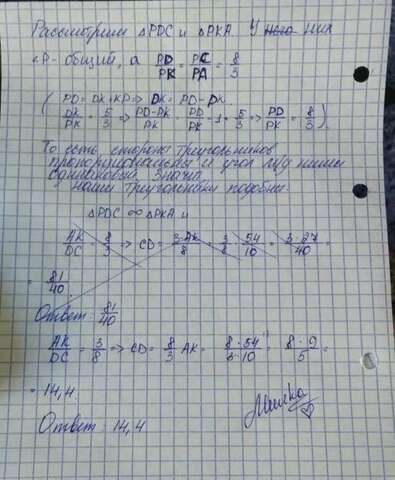 Рассмотрим △PDC и △PKA. У него них
∠P - общий, а PD/PK = PC/PA = 8/3
( PD = DK + KP => DK = PD - PK.
DK/PK = 5/3 => PD-PK/PK = PD/PK - 1 = 5/3 => PD/PK = 8/3 ).
То есть стороны треугольников
пропорциональны и угол м/у ними
одинаковый, значит
наши треугольники подобны.
△PDC ∞ △PKA и
AK/DC = 8/3 => CD = 3·AK/8 = 3/8 · 54/10 = 3·27/40 =
= 81/40.
Ответ: 81/40
AK/DC = 3/8 => CD = 8/3 AK = 8·54/3·10 = 8·9/5 =
= 14,4
Ответ: 14,4